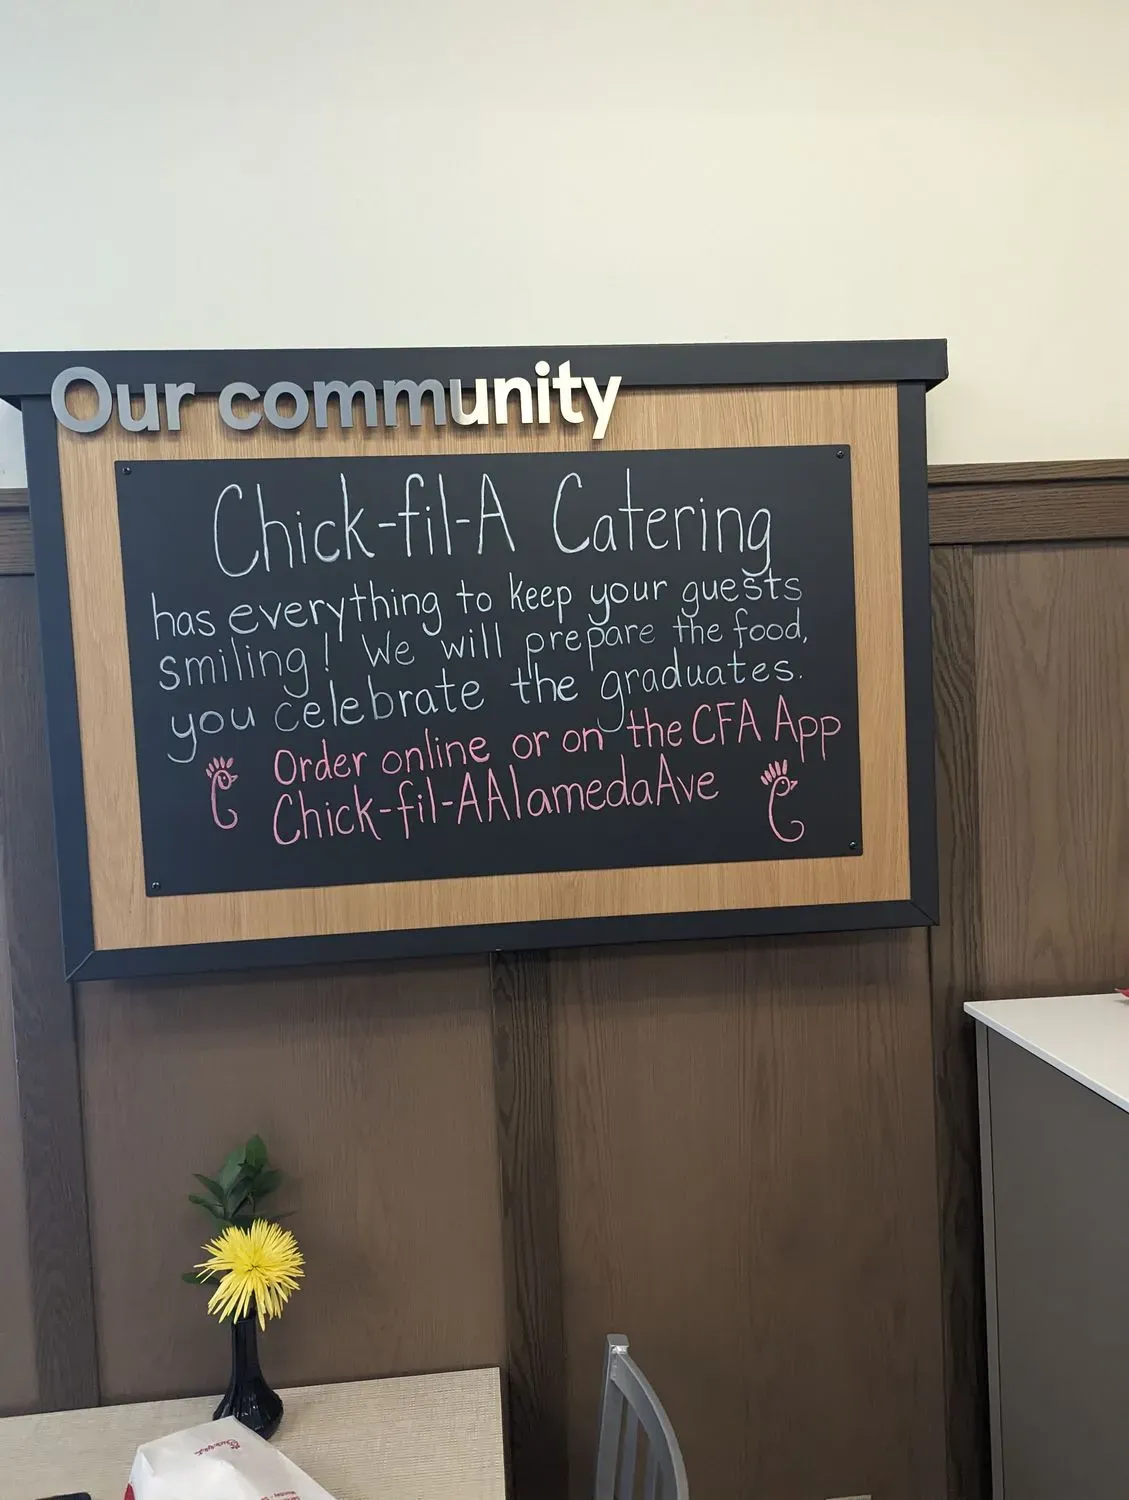 Our community
Chick-fil-A Catering
has everything to keep your guests
smiling! We will prepare the food,
you celebrate the graduates.
Order online or on the CFA App
Chick-fil-AAlamedaAve